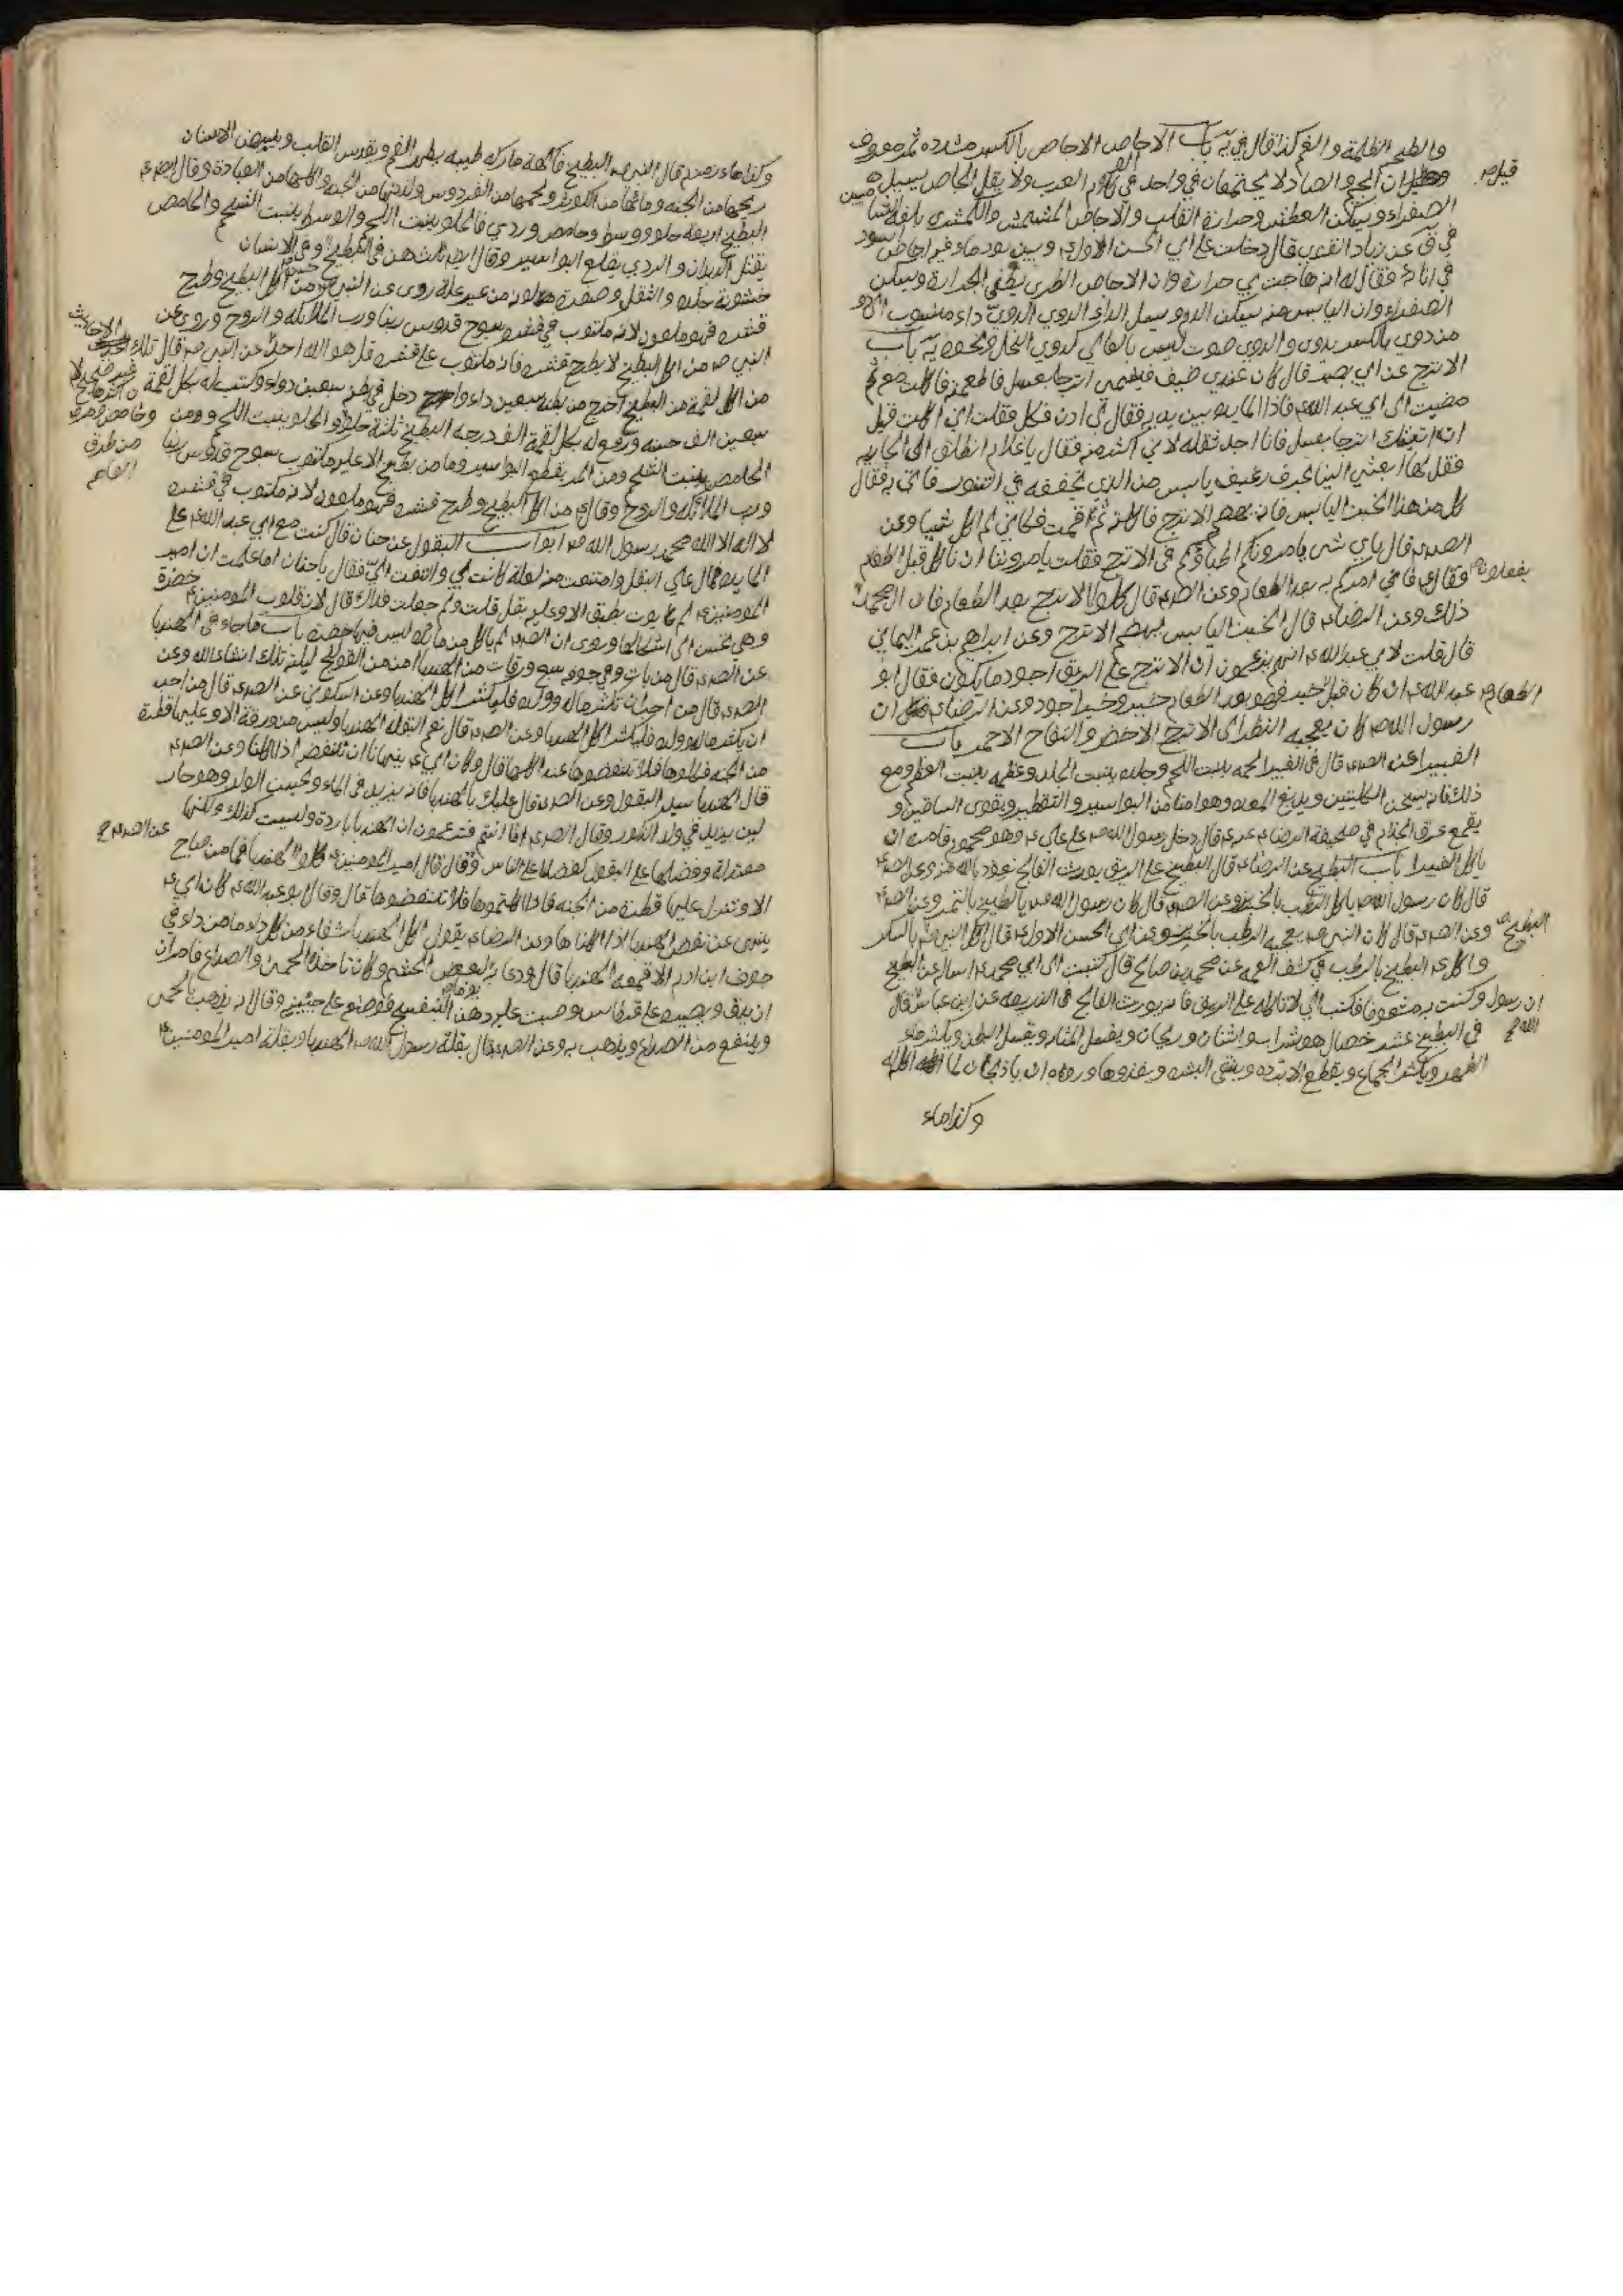 والطبخ الظلمة والغم كذا قال في يه باب الاجاص الاجاص بالكسر مشددة ثمر معروف
قيل ان الجيم والصاد لا يجتمعان في واحد في كلام العرب ولا يقل انجاص يسهل
الصفراء ويسكن العطش وحرارة القلب والاجاص المشمش والكمثرى بلغة الشاميين
في عن زياد القندي قال دخلت على ابي الحسن الاول ع وبين يديه تور ماء فيه اجاص اسود
في ابانه فقال له انه هاجت بي حرارة وان الاجاص الطري يطفي الحرارة ويسكن
الصفراء وان اليابس منه يسكن الدم ويسل الداء الدوي الدوي داء منسوب الى دو
من دوي بالكسر يدوى والدوى صوت ليس بالعالي كدوي النحل ونحوه يه باب
الاترج عن ابي بصير قال كان عندي ضيف فتشهى اترجا بعسل فاطعمته فاكلت معه ثم
مضيت الى ابي عبد الله ع فاذا المايدة بين يديه فقال لي ادن فكل فقلت اني اكلت قبل
ان اتيتك اترجا بعسل فانا اجد ثقله لاني اكثرت منه فقال يا غلام انطلق الى الجارية
فقل لها ابعثي الينا بحرف رغيف يابس من الذي تجففه في التنور فاتى به فقال
كل من هذا الخبز اليابس فانه يهضم الاترج فاكلته ثم قمت فكاني لم اكل شيئا وعن
الصد ع قال باي شئ يامرونكم اطباؤكم في الاترج فقلت يامروننا ان ناكله قبل الطعام
وقال ع فاني امركم به بعد الطعام وعن الصد ع قال كلوا الاترج بعد الطعام فان ال محمد يفعلون
ذلك وعن الرضا ع قال الخبز اليابس يهضم الاترج وعن ابراهيم بن عمر اليماني
قال قلت لابي عبد الله ع انهم يزعمون ان الاترج على الريق اجود ما يكون فقال ابو
عبد الله ع ان كان قبل الطعام خير فهو بعد الطعام خير وخير اجود وعن الرضا ع ان
رسول الله ص كان يعجبه النظر الى الاترج الاخضر والتفاح الاحمر باب
الغبيراء عن الصد ع قال في الغبيرا لحمه ينبت اللحم وجلده ينبت الجلد وعظمه ينبت العظم ومع
ذلك فانه يسخن الكليتين ويدبغ المعدة وهو امان من البواسير والتقطير ويقوي الساقين و
يقمع عرق الجذام في صحيفة الرضا ع قال دخل رسول الله ص على علي ع وهو محموم فامره ان
ياكل الغبيرا باب البطيخ عن الرضا ع قال البطيخ على الريق يورث الفالج نعوذ بالله منه وعن الصد ع
قال كان رسول الله ص ياكل الرطب بالخربز وعن الصد ع قال كان رسول الله ص ياكل البطيخ بالتمر وعن الصد ع
وعن الصد ع قال كان النبي ص يعجبه الرطب بالخربز وعن ابي الحسن الاول ع قال اكل النبي ص البطيخ بالسكر
واكل ع البطيخ بالرطب في كشف الغمة عن محمد بن صالح قال كتبت الى ابي محمد ع اساله عن البطيخ
وكنت به مشعوفا فكتب الي لا تاكله على الريق فانه يورث الفالج في الذريعه عن ابن عباس قال ان رسول الله ص قال
في البطيخ عشر خصال هو شراب واشنان وريحان ويغسل المثانه ويغسل البطن ويكثر ماء
الظهر ويكثر الجماع ويقطع الابردة وينقي البشرة
وكذا ماء
وكذا ماء قال النبي ص البطيخ فاكهة مباركة طيبه يطهر الفم ويقدس القلب ويبيض الاسنان
ريحها من الجنه وماؤها من الكوثر ولحمها من الفردوس ولذتها من الجنة واكلها من العبادة وقال ايضا ع
البطيخ اربعة حلو ووسط وحامض وردي فالحلو ينبت اللحم والوسط ينبت الشحم والحامض
يقتل الديدان والردي يقلع البواسير وقال ايضا ثلث هن في البطيخ وفي الانسان
خشونة جلده والثقل وصفرة لونه من غير علة روى عن النبي ص من اكل البطيخ وطرح
قشره فهو ملعون لانه مكتوب في قشره سبوح قدوس ربنا ورب الملائكه والروح وروي عن
النبي ص من اكل البطيخ لا يطرح قشره فانه مكتوب على قشره قل هو الله احد عن النبي ص قال
من اكل لقمة من البطيخ اخرج من بطنه سبعين داء وادخل في بطنه سبعين دواء وكتب له بكل لقمة
سبعين الف حسنه ورفع له بكل لقمة الف درجه البطيخ ثلثة حلو والحلو ينبت اللحم
الحامض ينبت الشحم ومن المر يقطع البواسير وما من بطيخ الا عليه مكتوب سبوح قدوس ربنا
ورب الملائكة والروح وقال ع من اكل البطيخ وطرح قشره فهو ملعون لانه مكتوب في قشره
لا اله الا الله محمد رسول الله ص ابواب البقول عن حنان قال كنت مع ابي عبد الله ع على
المايده فمال على البقل وامتنعت منه لعلة كانت بي والتفت الي فقال يا حنان اما علمت ان امير
المومنين ع لم يؤت بطبق الا وعليه بقل قلت ولم جعلت فداك قال لان قلوب المومنين خضرة
وهي تحن الى اشكالها وروى ان الصد ع لم ياكل من مائدة ليس فيها خضرة باب ما جاء في الهندبا
عن الصد ع قال من بات وفي جوفه سبع ورقات من الهندبا امن من القولنج ليلته تلك انشاء الله وعن
الصد ع قال من احب ان يكثر ماله وولده فليكثر اكل الهندبا وعن السكوني عن الصد ع قال من احب
ان يكثر ماله وولده فليكثر اكل الهندبا وعن الصد ع قال نعم البقلة الهندبا وليس من ورقة الا وعليها قطرة
من الجنه فكلوها ولا تنفضوها عند اكلها قال وكان ابي ع ينهانا ان ننفضه اذا اكلناه وعن الصد ع
قال الهندبا سيد البقول وعن الصد ع قال عليك بالهندبا فانه يزيد في الماء ويحسن الولد وهو حار
لين يزيد في ولد الذكور وقال الصد ع اما انتم فتزعمون ان الهندبا باردة وليست كذلك ولكنها
معتدلة وفضلها على البقول كفضلنا على الناس وقال قال امير المومنين ع كلوا الهندبا فما من صباح
الا وتنزل عليها قطرة من الجنه فاذا اكلتموها فلا تنفضوها قال وقال ابو عبد الله ع كان ابي ع
ينهى عن نفض الهندبا اذا اكلناها وعن الرضا ع يقول اكل الهندبا شفاء من كل داء ما من داء في
جوف ابن ادم الا قمعه الهندبا قال ودعا به يوما لبعض الحشم وكان تاخذه الحمى والصداع فامر ان
ان يدق ويصيره على قرطاس وصبت عليه دهن البنفسج فوضع على جبينه وقال انه يذهب بالحمى
وينفع من الصداع ويذهب به وعن الصد ع قال بقلة رسول الله ص الهندبا وبقلة امير المومنين ع